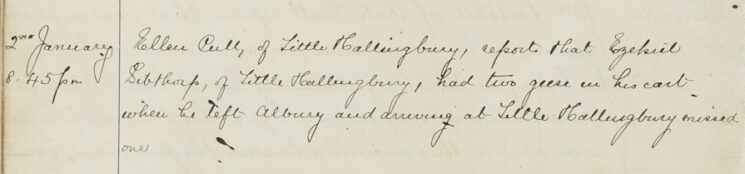 2nd January Ellen Cull, of Little Hallingbury, reports that Ezekiel
8.45 pm Sibthorp, of Little Hallingbury, had two geese in his cart
when he left Albury and arriving at Little Hallingbury missed
one